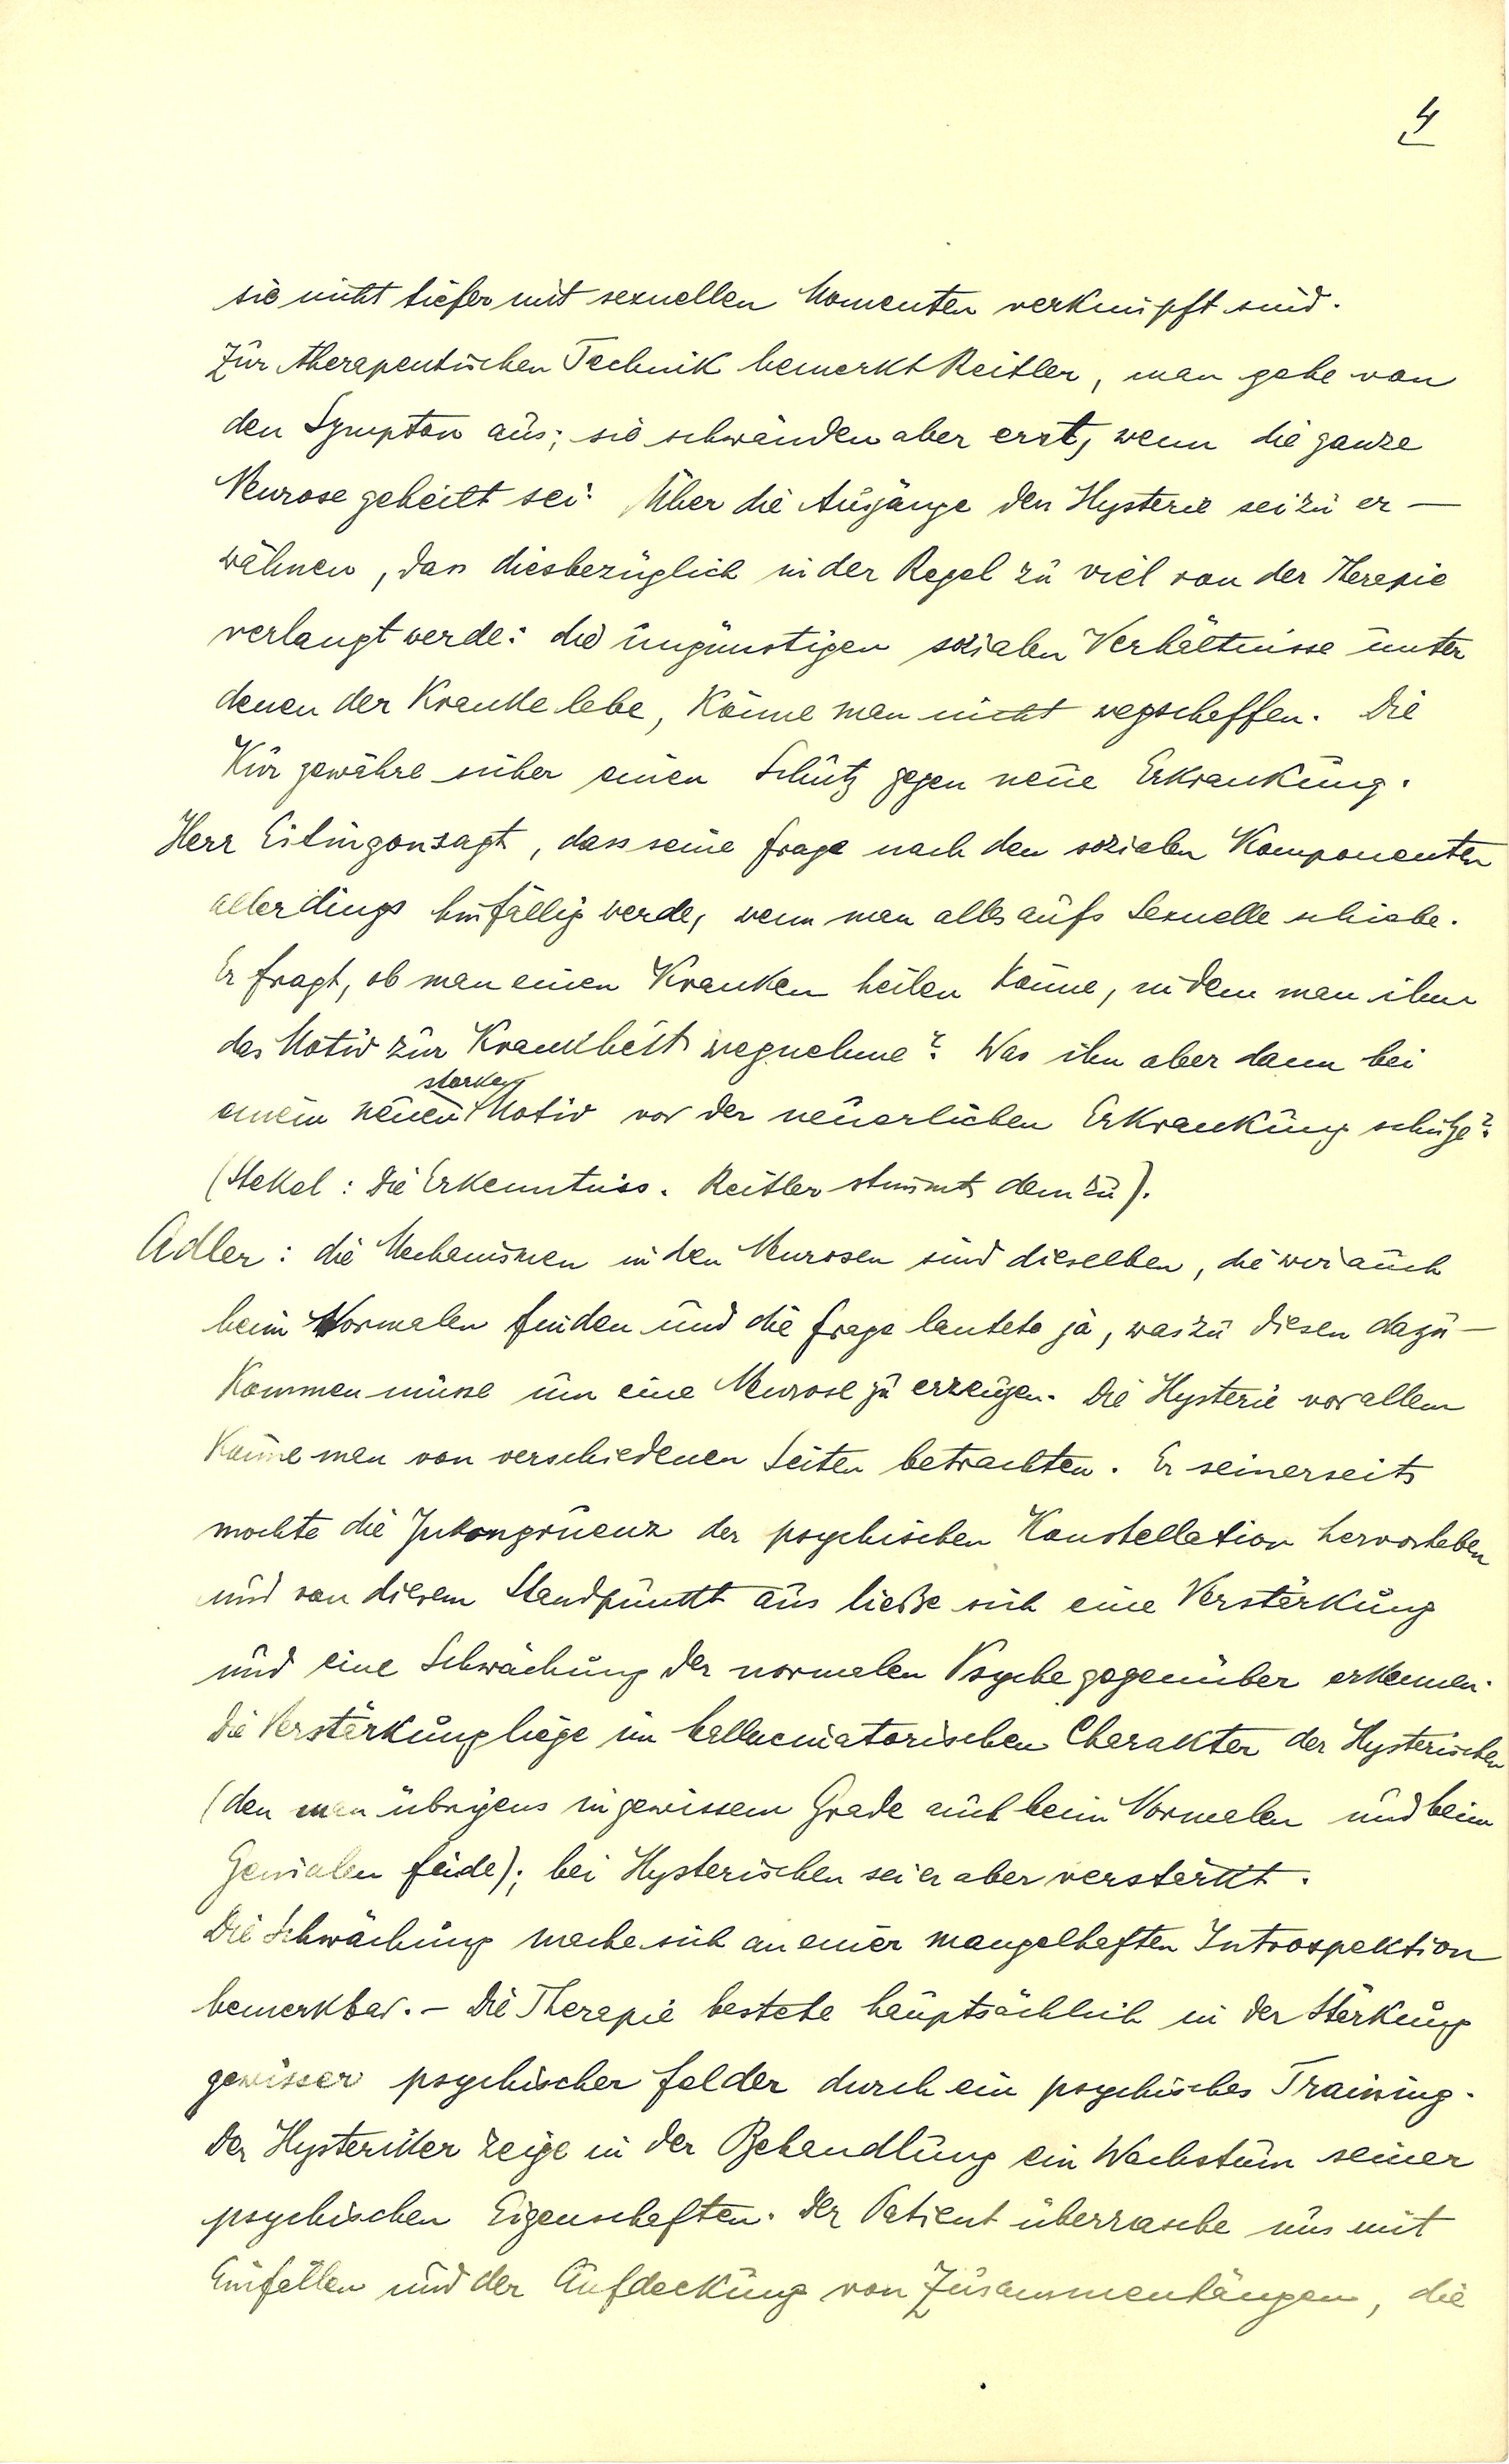 4
sie nicht tiefer mit sexuellen Momenten verknüpft sind.
Zur therapeutischen Technik bemerkt Reitler, man gehe von
den Sympton aus; sie schwänden aber erst, wenn die ganze
Neurose geheilt sei. Über die Ausgänge den Hysterie sei zu er-
wähnen, dass diesbezüglich in der Regel zu viel von der Therapie
verlangt werde: die ungünstigen sozialen Verhältnisse unter
denen der Kranke lebe, könne man nicht wegschaffen. Die
Kur gewähre sicher einen Schutz gegen neue Erkrankung.
Herr Eitingon sagt, dass seine Frage nach den sozialen Komponenten
allerdings hinfällig werde, wenn man alles aufs Sexuelle schiebe.
Er fragt, ob man einen Kranken heilen könne, indem man ihm
das Motiv zur Krankheit wegnehme? Was ihn aber dann bei
starken
einem neuen Motiv vor der neuerlichen Erkrankung schütze?
(Stekel: Die Erkenntniss. Reitler stimmt dem zu).
Adler: die Mechanismen in den Neurosen sind dieselben, die wir auch
beim Normalen finden und die Frage lautete ja, was zu diesen dazu-
kommen müsse um eine Neurose zu erzeugen. Die Hysterie vor allem
könne man von verschiedenen Seiten betrachten. Er seinerseits
mochte die Inkongruenz der psychischen Konstellation hervorheben
und von diesem Standpunkt aus ließe sich eine Verstärkung
und eine Schwächung der normalen Psyche gegenüber erkennen.
Die Verstärkung liege im hallucinatorischen Charakter der Hysterischen
(den man übrigens in gewissem Grade auch beim Normalen und beim
Genialen finde); bei Hysterischen sei er aber verstärkt.
Die Schwächung mache sich an einer mangelhaften Introspektion
bemerkbar. - Die Therapie bestehe hauptsächlich in der Stärkung
gewisser psychischer Felder durch ein psychisches Training.
Der Hysteriker zeige in der Behandlung ein Wachstum seiner
psychischen Eigenschaften. Der Patient überrasche uns mit
Einfällen und der Aufdeckung von Zusammenhängen, die